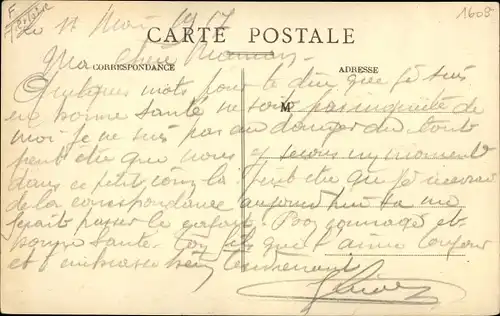 Le 11 Mai 1917
CARTE POSTALE
Ma chère Maman
CORRESPONDANCE
ADRESSE
1609
Quelques mots pour te dire que je suis
en bonne santé ne soit pas inquiète de
M
moi je ne suis pas au danger du tout
peut etre que nous y serons un moment
dans ce petit coin la peut etre que je recevrai
de la correspondance aujourd hui sa me
ferait passer le cafard. Bon courage et
bonne sante. Ton fils que t aime toujour
et t embrasse bien tendrement